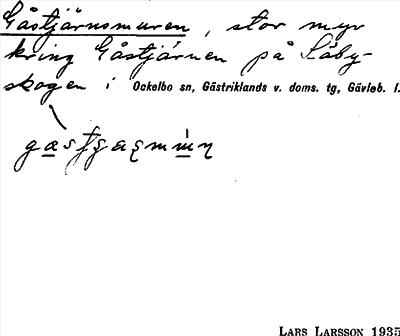 Gåstjärnsmuren, stor myr
kring Gåstjärnen på Såby-
skogen i Ockelbo sn, Gästriklands v. doms. tg, Gävleb. l.
LARS LARSSON 1935